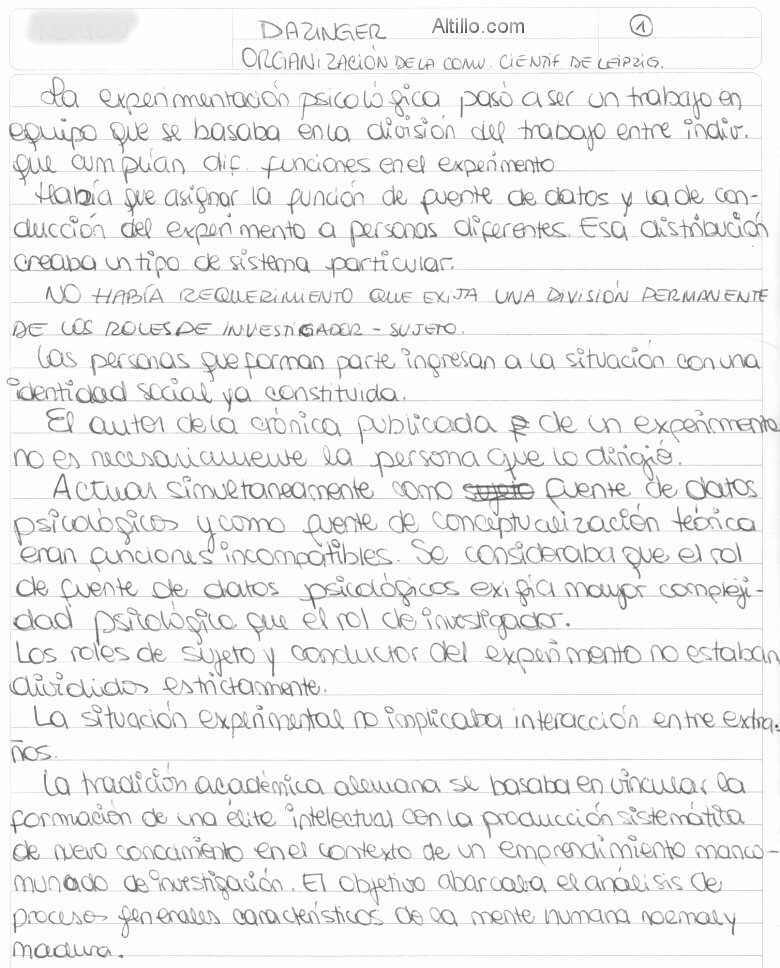 DAZINGER Altillo.com 1
ORGANIZACIÓN DE LA COMU. CIENTIF DE LEIPZIG.
La experimentación psicológica pasó a ser un trabajo en
equipo que se basaba en la división del trabajo entre indiv.
que cumplían dif. funciones en el experimento
Había que asignar la función de fuente de datos y la de con-
ducción del experimento a personas diferentes. Esa distribución
creaba un tipo de sistema particular.
NO HABÍA REQUERIMIENTO QUE EXIJA UNA DIVISIÓN PERMANENTE
DE LOS ROLES DE INVESTIGADOR - SUJETO.
Las personas que forman parte ingresan a la situación con una
identidad social ya constituida.
El autor de la crónica publicada de un experimento
no es necesariamente la persona que lo dirigió.
Actuar simultaneamente como sujeto fuente de datos
psicológicos y como fuente de conceptualización teórica
eran funciones incompatibles. Se consideraba que el rol
de fuente de datos psicológicos exigía mayor compleji-
dad psicológica que el rol de investigador.
Los roles de sujeto y conductor del experimento no estaban
divididos estrictamente.
La situación experimental no implicaba interacción entre extra-
ños.
La tradición académica alemana se basaba en vincular la
formación de una élite intelectual con la producción sistemática
de nuevo conocimiento en el contexto de un emprendimiento manco-
munado de investigación. El objetivo abarcaba el análisis de
procesos generales característicos de la mente humana normal y
madura.